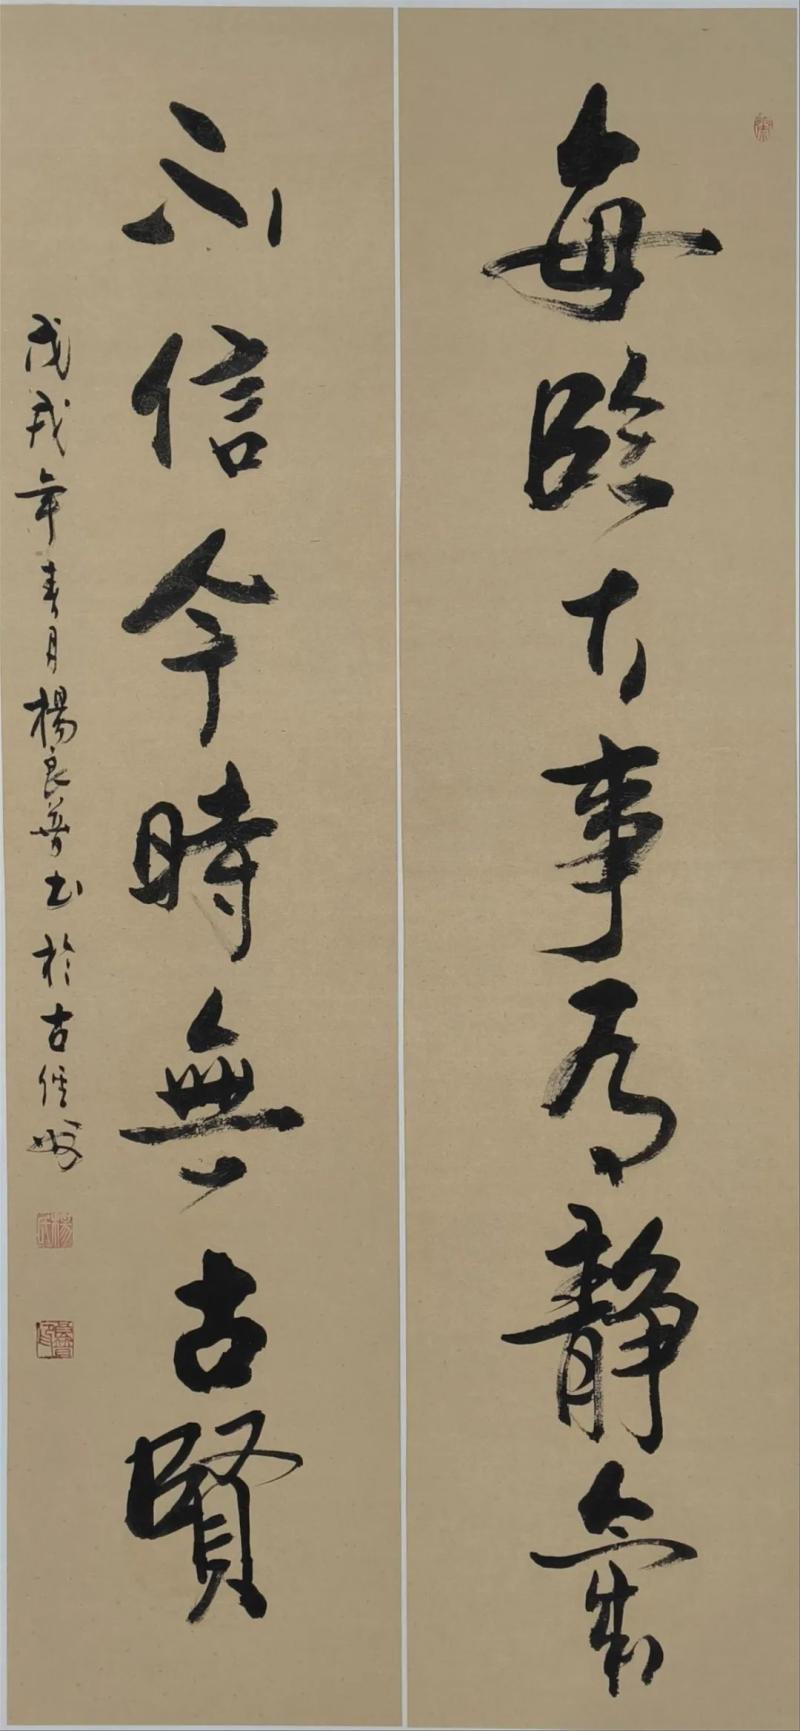 每臨大事有靜氣
不信今時無古賢
戊戌年春月楊良普书於古